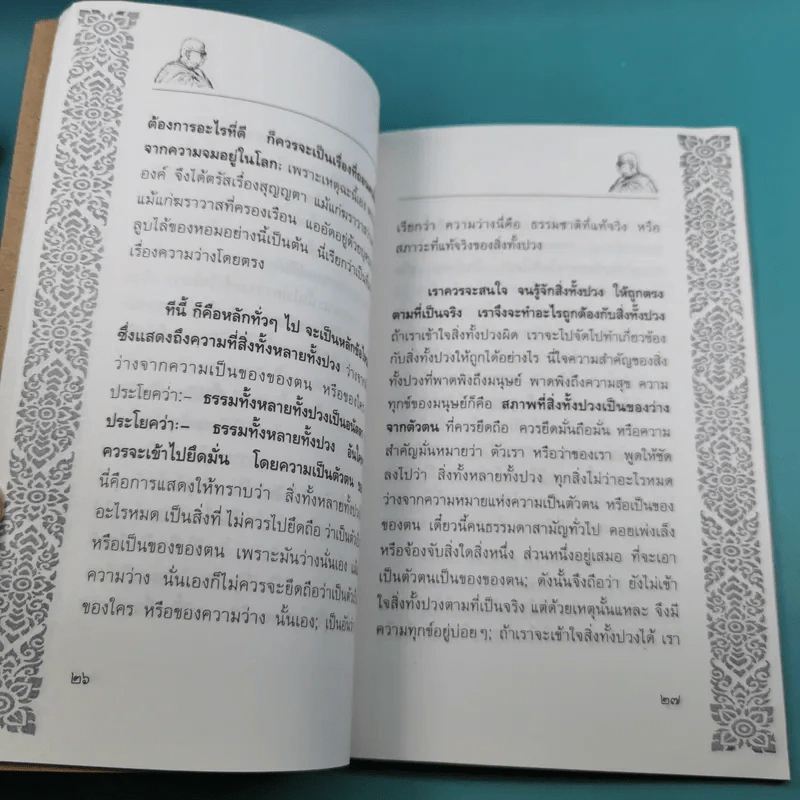 ต้องการอะไรที่ดี ก็ควรจะเป็นเรื่องที่
จากความจมอยู่ในโลก; เพราะเหตุฉะนี้เอง
องค์ จึงได้ตรัสเรื่องสุญญตา แม้แก่ฆราวา
แม้แก่ฆราวาสที่ครองเรือน แออัดอยู่ด้วย
ลูบไล้ของหอมอย่างนี้เป็นต้น นี่เรียกว่าเป็น
เรื่องความว่างโดยตรง
ทีนี้ ก็คือหลักทั่วๆ ไป จะเป็นหลัก
ซึ่งแสดงถึงความที่สิ่งทั้งหลายทั้งปวง
ว่างจากความเป็นของของตน หรือของใคร
ประโยคว่า:– ธรรมทั้งหลายทั้งปวงเป็นอนัตตา
ประโยคว่า:– ธรรมทั้งหลายทั้งปวง อันใคร
ควรจะเข้าไปยึดมั่น โดยความเป็นตัวตน
นี่คือการแสดงให้ทราบว่า สิ่งทั้งหลายทั้งปวง
อะไรหมด เป็นสิ่งที่ ไม่ควรไปยึดถือ ว่าเป็นตัว
หรือเป็นของของตน เพราะมันว่างนั่นเอง
ความว่าง นั่นเองก็ไม่ควรจะยึดถือว่าเป็นตัว
ของใคร หรือของความว่าง นั้นเอง; เป็นอันว่า
๒๖
เรียกว่า ความว่างนี่คือ ธรรมชาติที่แท้จริง หรือ
สภาวะที่แท้จริงของสิ่งทั้งปวง
เราควรจะสนใจ จนรู้จักสิ่งทั้งปวง ให้ถูกตรง
ตามที่เป็นจริง เราจึงจะทำอะไรถูกต้องกับสิ่งทั้งปวง
ถ้าเราเข้าใจสิ่งทั้งปวงผิด เราจะไปจัดไปทำเกี่ยวข้อง
กับสิ่งทั้งปวงให้ถูกได้อย่างไร นี่ใจความสำคัญของสิ่ง
ทั้งปวงที่พาดพิงถึงมนุษย์ พาดพิงถึงความสุข ความ
ทุกข์ของมนุษย์ก็คือ สภาพที่สิ่งทั้งปวงเป็นของว่าง
จากตัวตน ที่ควรยึดถือ ควรยึดมั่นถือมั่น หรือความ
สำคัญมั่นหมายว่า ตัวเรา หรือว่าของเรา พูดให้ชัด
ลงไปว่า สิ่งทั้งหลายทั้งปวง ทุกสิ่งไม่ว่าอะไรหมด
ว่างจากความหมายแห่งความเป็นตัวตน หรือเป็นของ
ของตน เดี๋ยวนี้คนธรรมดาสามัญทั่วไป คอยเพ่งเล็ง
หรือจ้องจับสิ่งใดสิ่งหนึ่ง ส่วนหนึ่งอยู่เสมอ ที่จะเอา
เป็นตัวตนเป็นของของตน; ดังนั้นจึงถือว่า ยังไม่เข้า
ใจสิ่งทั้งปวงตามที่เป็นจริง แต่ด้วยเหตุนั้นแหละ จึงมี
ความทุกข์อยู่บ่อยๆ; ถ้าเราจะเข้าใจสิ่งทั้งปวงได้ เรา
๒๗